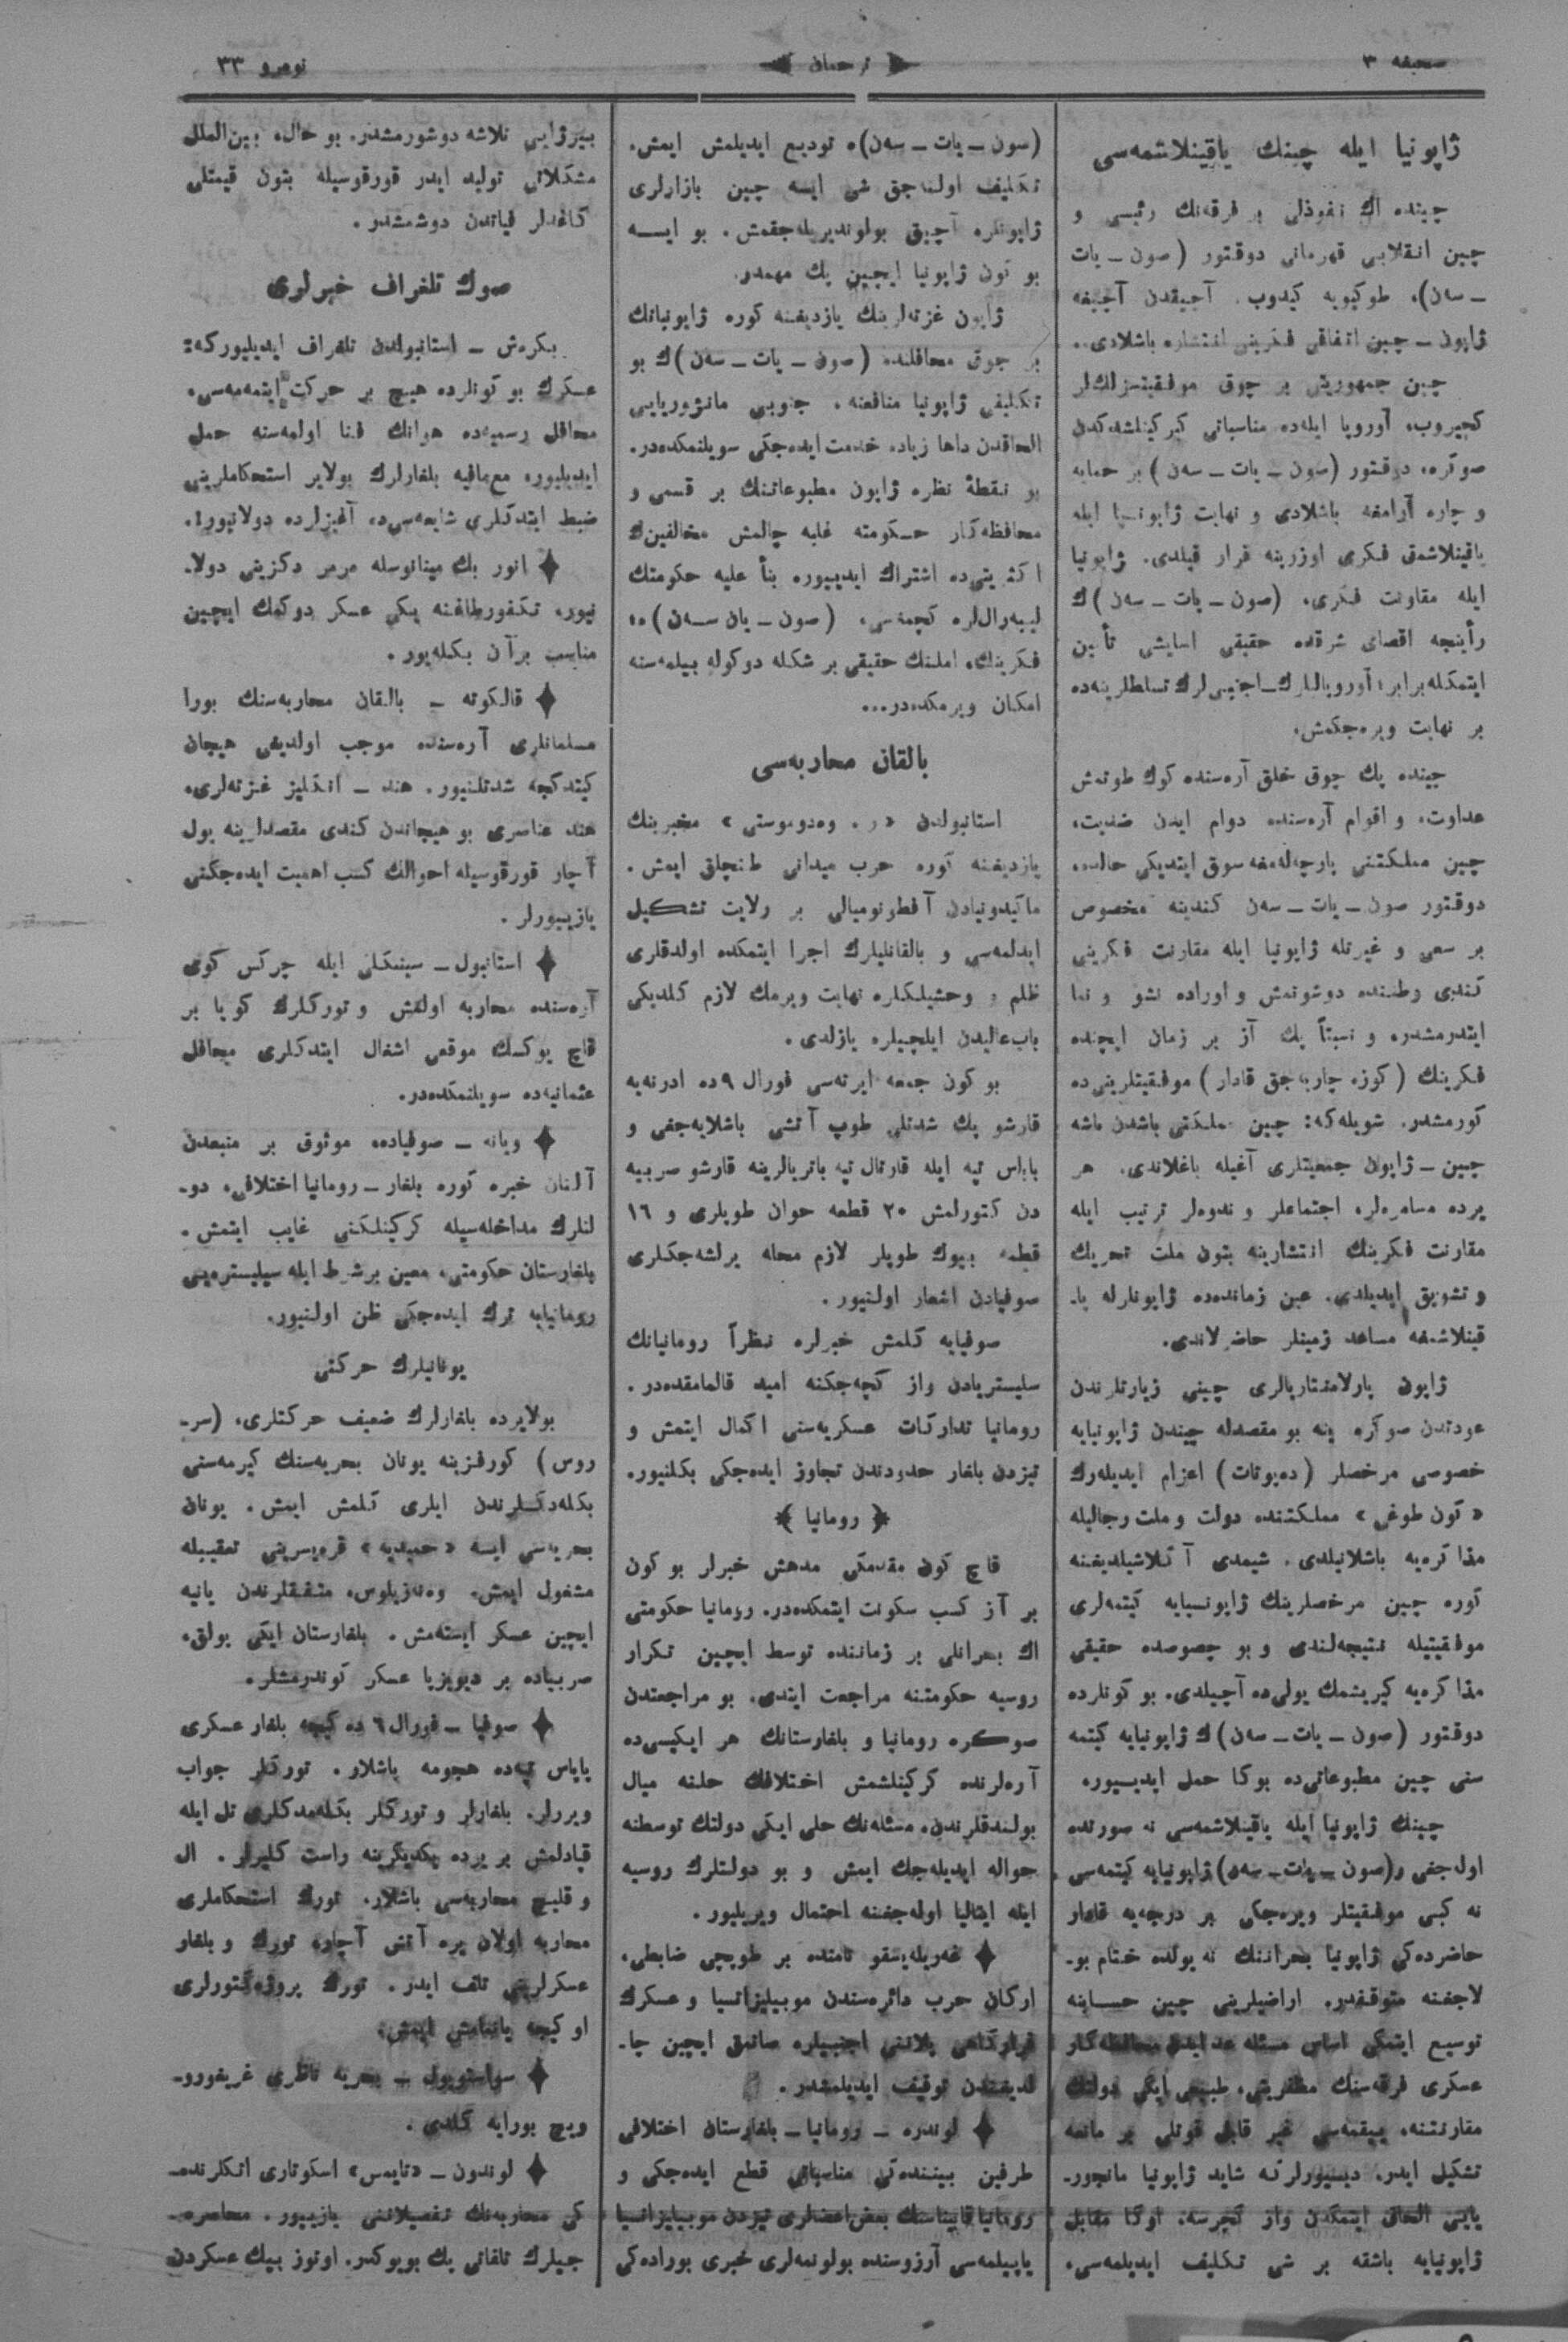 صحیفه ۳
ترجمان
نومرو ۳۳
ژاپونیا ایله چینك یاقینلاشمه‌سی
چینده اڭ نفوذلی بر فرقه‌نك رئیسی و
چین انقلابی قهرمانی دوقتور (صون ـ یات
ـ سه‌ن)، طوکیویه کیدوب، آچیقدن آچیغه
ژاپون ـ چین اتفاقی فکرینی انتشاره باشلادی..
چین جمهوریتی بر چوق موفقیتسزلكلر
کچیروب، آوروپا ایله‌ده مناسباتی کرکینلشدکدن
صوڭره، دوقتور (سون ـ یات ـ سه‌ن) بر حمایه
و چاره آرامغه باشلادی و نهایت ژاپونیا ایله
یاقینلاشمق فکری اوزرینه قرار قیلدی. ژاپونیا
ایله مقاونت فکری، (صون ـ یات ـ سه‌ن)ك
رأینجه اقصای شرقده حقیقی اسایشی تأمین
ایتمکله برابر؛ آوروپالیلرك ـ اجنبی‌لرك تسلطلرینه‌ده
بر نهایت ویره‌جکمش.
چینده پك چوق خلق آره‌سنده کوك طوتمش
عداوت، و اقوام آره‌سنده دوام ایدن ضدیت،
چین مملکتنی پارچه‌لامغه سوق ایتدیکی حالده،
دوقتور صون ـ یات ـ سه‌ن کندینه مخصوص
بر سعی و غیرتله ژاپونیا ایله مقارنت فکرینی
کندی وطننده دوشونمش و اوراده نشو و نما
ایتدرمشدر، و نسبتاً پك آز بر زمان ایچنده
فکرینك (کوزه چارپه‌جق قادار) موفقیتلرینی‌ده
کورمشدر. شویله‌که: چین مملکتی باشدن باشه
چین ـ ژاپون جمعیتلری آغیله باغلاندی. هر
یرده مسامره‌لر، اجتماعلر و ندوه‌لر ترتیب ایله
مقارنت فکرینك انتشارینه بتون ملت تحریك
و تشویق ایدیلدی. عین زمانده‌ده ژاپونارله یا-
قینلاشمغه مساعد زمینلر حاضرلاندی.
ژاپون پارلامنتاریالری چینی زیارتلرندن
عودتدن صوڭره ینه بو مقصدله چیندن ژاپونیایه
خصوصی مرخصلر (ده‌پوتات) اعزام ایدیله‌رك
«کون طوغی» مملکتنده دولت و ملت رجالیله
مذاکره‌یه باشلانیلدی. شیمدی آڭلاشیلدیغنه
کوره چین مرخصلرینك ژاپونیایه کیتمه‌لری
موفقیتیله نتیجه‌لندی و بو خصوصده حقیقی
مذاکره‌یه کیریشمك یولی‌ده آچیلدی. بو کونلرده
دوقتور (صون ـ یات ـ سه‌ن)ك ژاپونیایه کیتمه
سنی چین مطبوعاتی‌ده بوکا حمل ایدییور.
چینك ژاپونیا ایله یاقینلاشمه‌سی نه صورتده
اوله‌جغی و(صون ـ یات ـ سه‌ن) ژاپونیایه کیتمه‌سی
نه کبی موفقیتلر ویره‌جکی بر درجه‌یه قادار
حاضرده‌کی ژاپونیا بحراننك نه یولده ختام بو-
لاجغنه متوقفدر. اراضیلرینی چین حسابنه
توسیع ایتمکی اساس مسئله عد ایدن محافظه‌کار
عسکری فرقه‌سنك مظفریتی، طبیعی ایکی دولتك
مقارنتنه، ییقمه‌سی غیر قابل قوتلی بر مانعه
تشکیل ایدر. دییییورلرکه شاید ژاپونیا مانجور-
یایی الحاق ایتمکدن واز کچرسه، اوکا مقابل
ژاپونیایه باشقه بر شی تکلیف ایدیلمه‌سی،
(سون ـ یات ـ سه‌ن)ه تودیع ایدیلمش ایمش.
تکلیف اولنه‌جق شی ایسه چین بازارلری
ژاپونلره آچیق بولوندیریله‌جقمش. بو ایسه
بو کون ژاپونیا ایچین پك مهمدر.
ژاپون غزته‌لرینك یازدیغنه کوره ژاپونیانك
بر چوق محافلنده (صون ـ یات ـ سه‌ن)ك بو
تکلیفی ژاپونیا منافعنه، جنوبی مانژوریایی
الحاقدن داها زیاده خدمت ایده‌جکی سویلنمکده‌در.
بو نقطهٔ نظره ژاپون مطبوعاتنك بر قسمی و
محافظه‌کار حکومته غلبه چالمش مخالفین‌ك
اکثریتی‌ده اشتراك ایدییور. بنأ علیه حکومتك
لیبه‌رال‌لره کچمه‌سی، (صون ـ یات سه‌ن)ه
فکرینك، املنك حقیقی بر شکله دوکوله بیلمه‌سنه
امکان ویرمکده‌در...
بالقان محاربه‌سی
استانبولدن «ر. وه‌دوموستی» مخبرینك
یازدیغنه کوره حرب میدانی طنجلق ایمش.
ماکیدونیادن آفطونومیالی بر ولایت تشکیل
ایدلمه‌سی و بالقانلیلرك اجرا ایتمکده اولدقلری
ظلم و وحشیلکلره نهایت ویرمك لازم کلدیکی
باب‌عالیدن ایلچیلره یازلدی.
بو کون جمعه ایرته‌سی فورال ۹ده ادرنه‌یه
قارشو پك شدتلی طوپ آتشی باشلایه‌جغی و
پاپاس تپه ایله قارتال تپه باتریالرینه قارشو صربیه
دن کتورلمش ۲۰ قطعه حوان طوپلری و ۱٦
قطعه بیوك طوپلر لازم محله یرلشه‌جکلری
صوفیادن اشعار اولنیور.
صوفیایه کلمش خبرلره نظراً رومانیانك
سلیستریادن واز کچه‌جکنه امید قالمامقده‌در.
رومانیا تدارکات عسکریه‌سنی اکمال ایتمش و
تیزدن بلغار حدودندن تجاوز ایده‌جکی بکلنیور.
﴿ رومانیا ﴾
قاچ کون مقدمکی مدهش خبرلر بو کون
بر آز کسب سکونت ایتمکده‌در. رومانیا حکومتی
اڭ بحرانلی بر زماننده توسط ایچین تکرار
روسیه حکومتنه مراجعت ایتدی. بو مراجعتدن
صوڭره رومانیا و بلغارستانك هر ایکیسی‌ده
آره‌لرنده کرکینلشمش اختلافك حلنه میال
بولندقلرندن، مسئله‌نك حلی ایکی دولتك توسطنه
حواله ایدیله‌جك ایمش و بو دولتلرك روسیه
ایله ایتالیا اوله‌جغنه احتمال ویریلیور.
✦ غه‌ریله‌یسقو نامنده بر طوپچی ضابطی،
ارکان حرب دائره‌سندن موبیلیزاتسیا و عسکرك
قرارکاهی پلاننی اجنبیلره صاتمق ایچین چا-
لدیغندن توقیف ایدیلمشدر.
✦ لوندره ـ رومانیا ـ بلغارستان اختلافی
طرفین بیننده‌کی مناسباتی قطع ایده‌جکی و
رومانیا قابیناسنك بعض اعضالری تیزدن موبیلیزاتسیا
یاپیلمه‌سی آرزوسنده بولونمه‌لری خبری بوراده‌کی
بیرژایی تلاشه دوشورمشدر. بو حال، بین‌الملل
مشکلاتی تولید ایدر قورقوسیله بتون قیمتلی
کاغدلر فیاتدن دوشمشدر.
صوك تلغراف خبرلری
بکرش ـ استانبولدن تلغراف ایدیلیورکه:
عسکرك بو کونلرده هیچ بر حرکت ایتمه‌مه‌سی،
محافل رسمیه‌ده هوانك فنا اولمه‌سنه حمل
ایدیلیور، مع‌مافیه بلغارلرك بولایر استحکاملرینی
ضبط ایتدکلری شایعه‌سی‌ده آغیزلرده دولانیور!.
✦ انور بك مینانوسله مرمر دکزینی دولا-
نیور، تکفورطاغنه یکی عسکر دوکمك ایچین
مناسب برآن بکله‌یور.
✦ قالکوته ـ بالقان محاربه‌سنك بورا
مسلمانلری آره‌سنده موجب اولدیغی هیجان
کیتدکچه شدتلنیور. هند ـ انکلیز غزته‌لری،
هند عناصری بو هیجاندن کندی مقصدلرینه یول
آچار قورقوسیله احوالك کسب اهمیت ایده‌جکنی
یازییورلر.
✦ استانبول ـ سینکلی ایله چرکس کوی
آره‌سنده محاربه اولمش و تورکلرك کویا بر
قاچ یوکسك موقعی اشغال ایتدکلری محافل
عثمانیه‌ده سویلنمکده‌در.
✦ ویانه ـ صوفیاده، موثوق بر منبعدن
آلنان خبره کوره بلغار ـ رومانیا اختلافی، دو-
لتلرك مداخله‌سیله کرکینلکنی غایب ایتمش.
بلغارستان حکومتی، معین برشرط ایله سیلیستره‌یی
رومانیایه ترك ایده‌جکی ظن اولنیور.
یونانیلرك حرکتی
بولایرده بلغارلرك ضعیف حرکتلری، (سر-
روس) کورفزینه یونان بحریه‌سنك کیرمه‌سنی
بکله‌دکلرندن ایلری کلمش ایمش. یونان
بحریه‌سی ایسه «حمیدیه» قره‌یسرینی تعقیبله
مشغول ایمش. وه‌نه‌زیلوس، متفقلرندن یانیه
ایچین عسکر ایسته‌مش. بلغارستان ایکی پولق،
صربیاده بر دیویزیا عسکر کوندرمشلر.
✦ صوفیا ـ فورال ٦ ده کیچه بلغار عسکری
پاپاس تپه‌ده هجومه باشلار. تورکلر جواب
ویررلر. بلغارلر و تورکلر بکله‌مدکلری تل ایله
قپادلمش بر یرده یکدیگرینه راست کلیرلر. ال
و قلیچ محاربه‌سی باشلار. تورك استحکاملری
محاربه اولان یره آتش آچار، تورك و بلغار
عسکرلرینی تلف ایدر. تورك پروژه‌کتورلری
او کیچه یانمامش ایمش.
✦ سواستوپول ـ بحریه ناظری غریغورو-
ویچ بورایه کلدی.
✦ لوندون ـ «تایمس» اسکوتاری اتکلرنده-
کی محاربه‌نك تفصیلاتنی یازییور. محاصره-
جیلرك تلفاتی پك بویوکدر. اوتوز بیك عسکردن